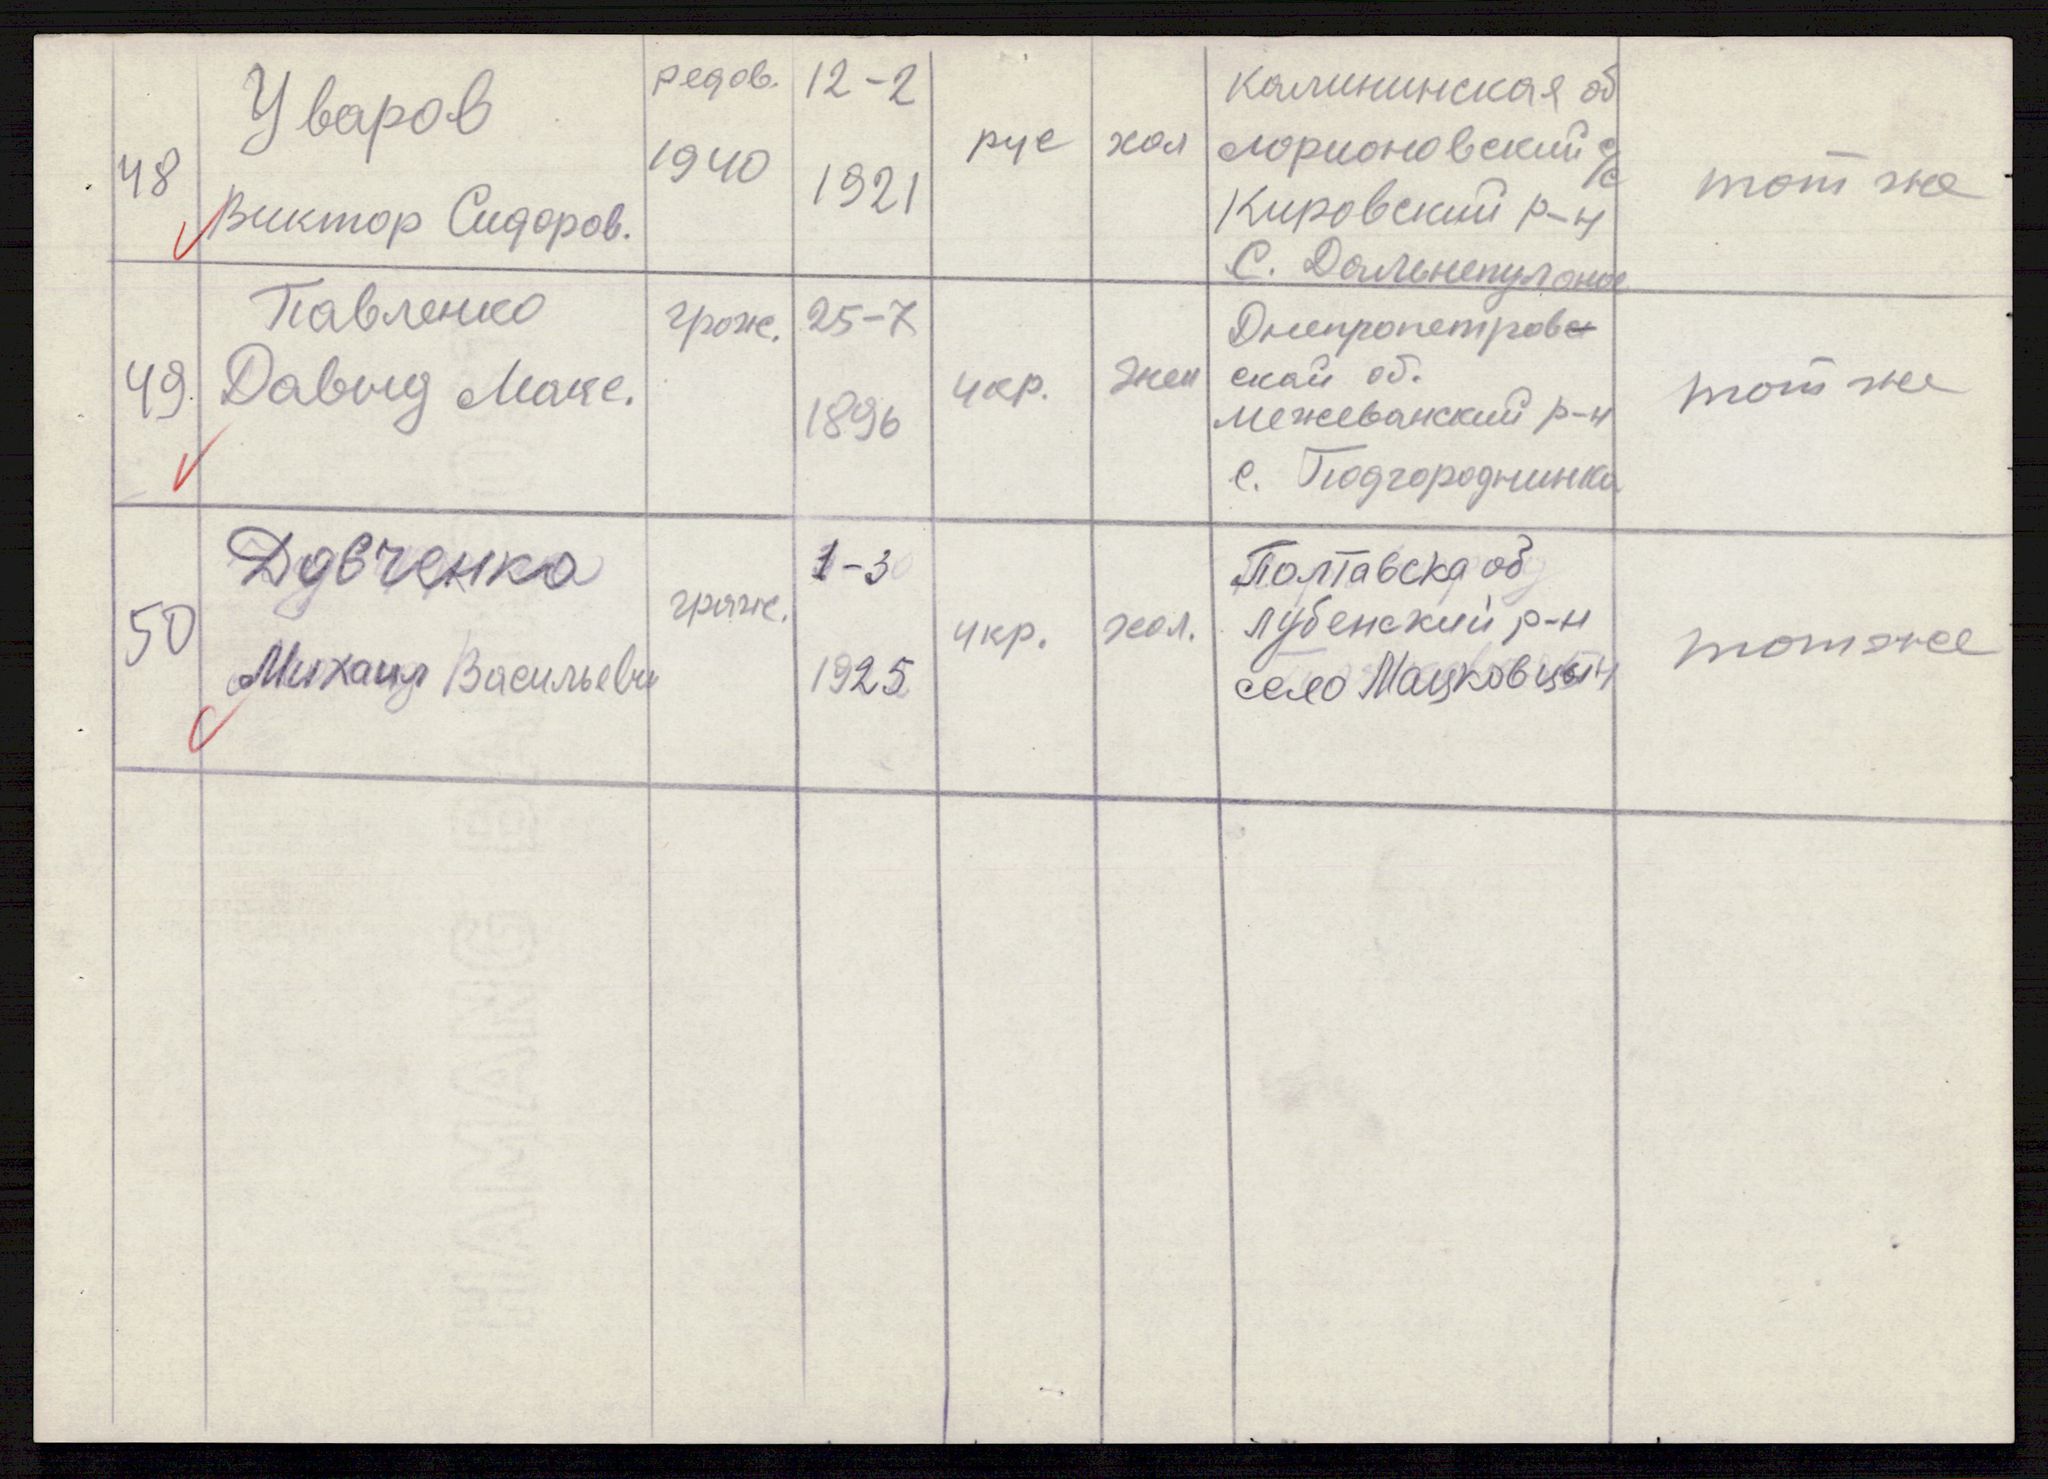 48
Уваров
Виктор Сидоров.
редов.
1940
12-2
1921
рус
хол
Калининская об
лорионовский с/с
Кировский р-н
С.
тот же
49
Павленко
Давыд Макс.
грож.
25-7
1896
укр.
жен
Днепропетровс
скай об.
межеванский р-н
с. Подгороднинка
тот же
50
Довченко
Михаил Васильеви
грож.
1-3
1925
укр.
хол.
Полтавска об
лубенский р-н
село Мацковцы
тот же